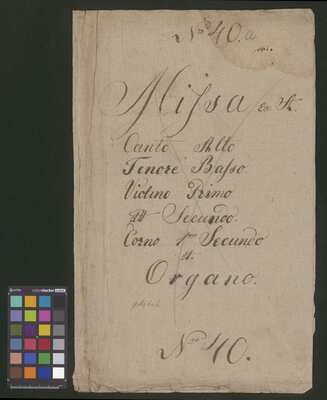 No 40. a
Missa ex A.
Canto Alto
Tenore Basso.
Violino Primo
Secundo.
Corno 1mo Secundo
et.
Organo.
No 40.